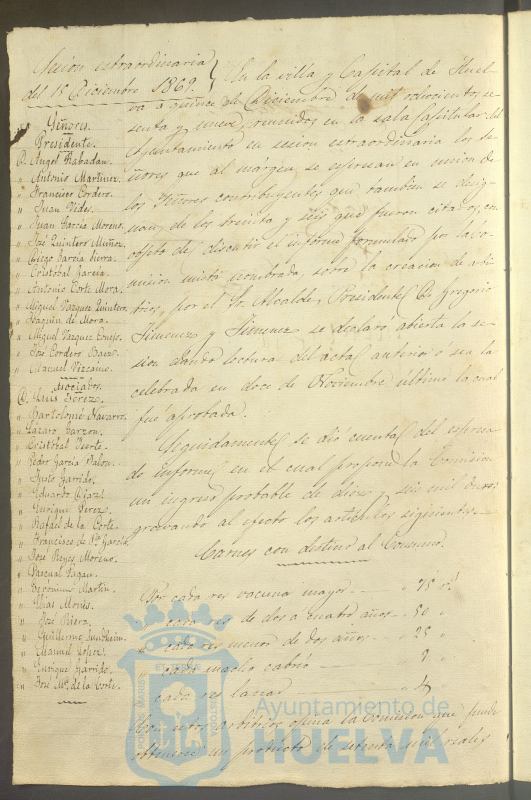 Sesion extraordinaria
del 15 Diciembre 1869.
Señores.
Presidente.
D. Angel Rabadan.
" Antonio Martinez
" Francisco Cordero
" Juan Vides.
" Juan Garcia Moreno
" José Quintero Muñoz.
" Diego Garcia Sierra.
" Cristobal Garcia.
" Antonio Corte Mora.
" Miguel Vazquez Quintero
" Joaquin de Mora.
" Miguel Vazquez
" José Cordero
" Manuel Vizcaino.
Asociados.
D. Luis Perez.
" Bartolomé Navarro.
" Lázaro Garzon.
" Cristobal
" Pedro Garcia
" Justo Garrido.
" Eduardo Diaz.
" Enrique Perez.
" Rafael de la Corte.
" Francisco de P. Garcia
" José Reyes Moreno.
" Pascual Pagan.
" Geronimo Martin.
" Elias
" José Riera.
" Guillermo Sundheim.
" Manuel Lopez
" Enrique Garrido.
" José Mª de la Corte.
En la villa y Capital de Huel-
va a quince de Diciembre de mil ochocientos se-
senta y nueve, reunidos en la sala Capitular del
Ayuntamiento en sesion extraordinaria los Se-
ñores que al márgen se espresan en union de
los Señores contribuyentes que tambien se desig-
nan, de los treinta y seis que fueron citados, con
objeto de discutir el informe formulado por la Co-
mision mista nombrada sobre la creacion de arbi-
trios, por el Sr. Alcalde Presidente D. Gregorio
Jimenez y Jimenez se declaró abierta la se-
sion dando lectura del acta anterior ó sea la
celebrada en doce de Noviembre último la cual
fué aprobada.
Seguidamente se dió cuenta del espresa-
do informe en el cual propone la Comision
un ingreso probable de diez y seis mil
gravando al efecto los artículos siguientes.
Carnes con destino al Consumo.
Por cada res vacuna mayor " 75 r.
" cada res de dos á cuatro años " 50 "
" cada res menor de dos años " 25 "
" cada macho cabrio "
" cada res lanar " 4
Con estos arbitrios opina la Comision que puede
obtenerse un producto de setenta mil reales
PORTUS MARIS
ET TERRE
CUSTODIA
Ayuntamiento de
HUELVA